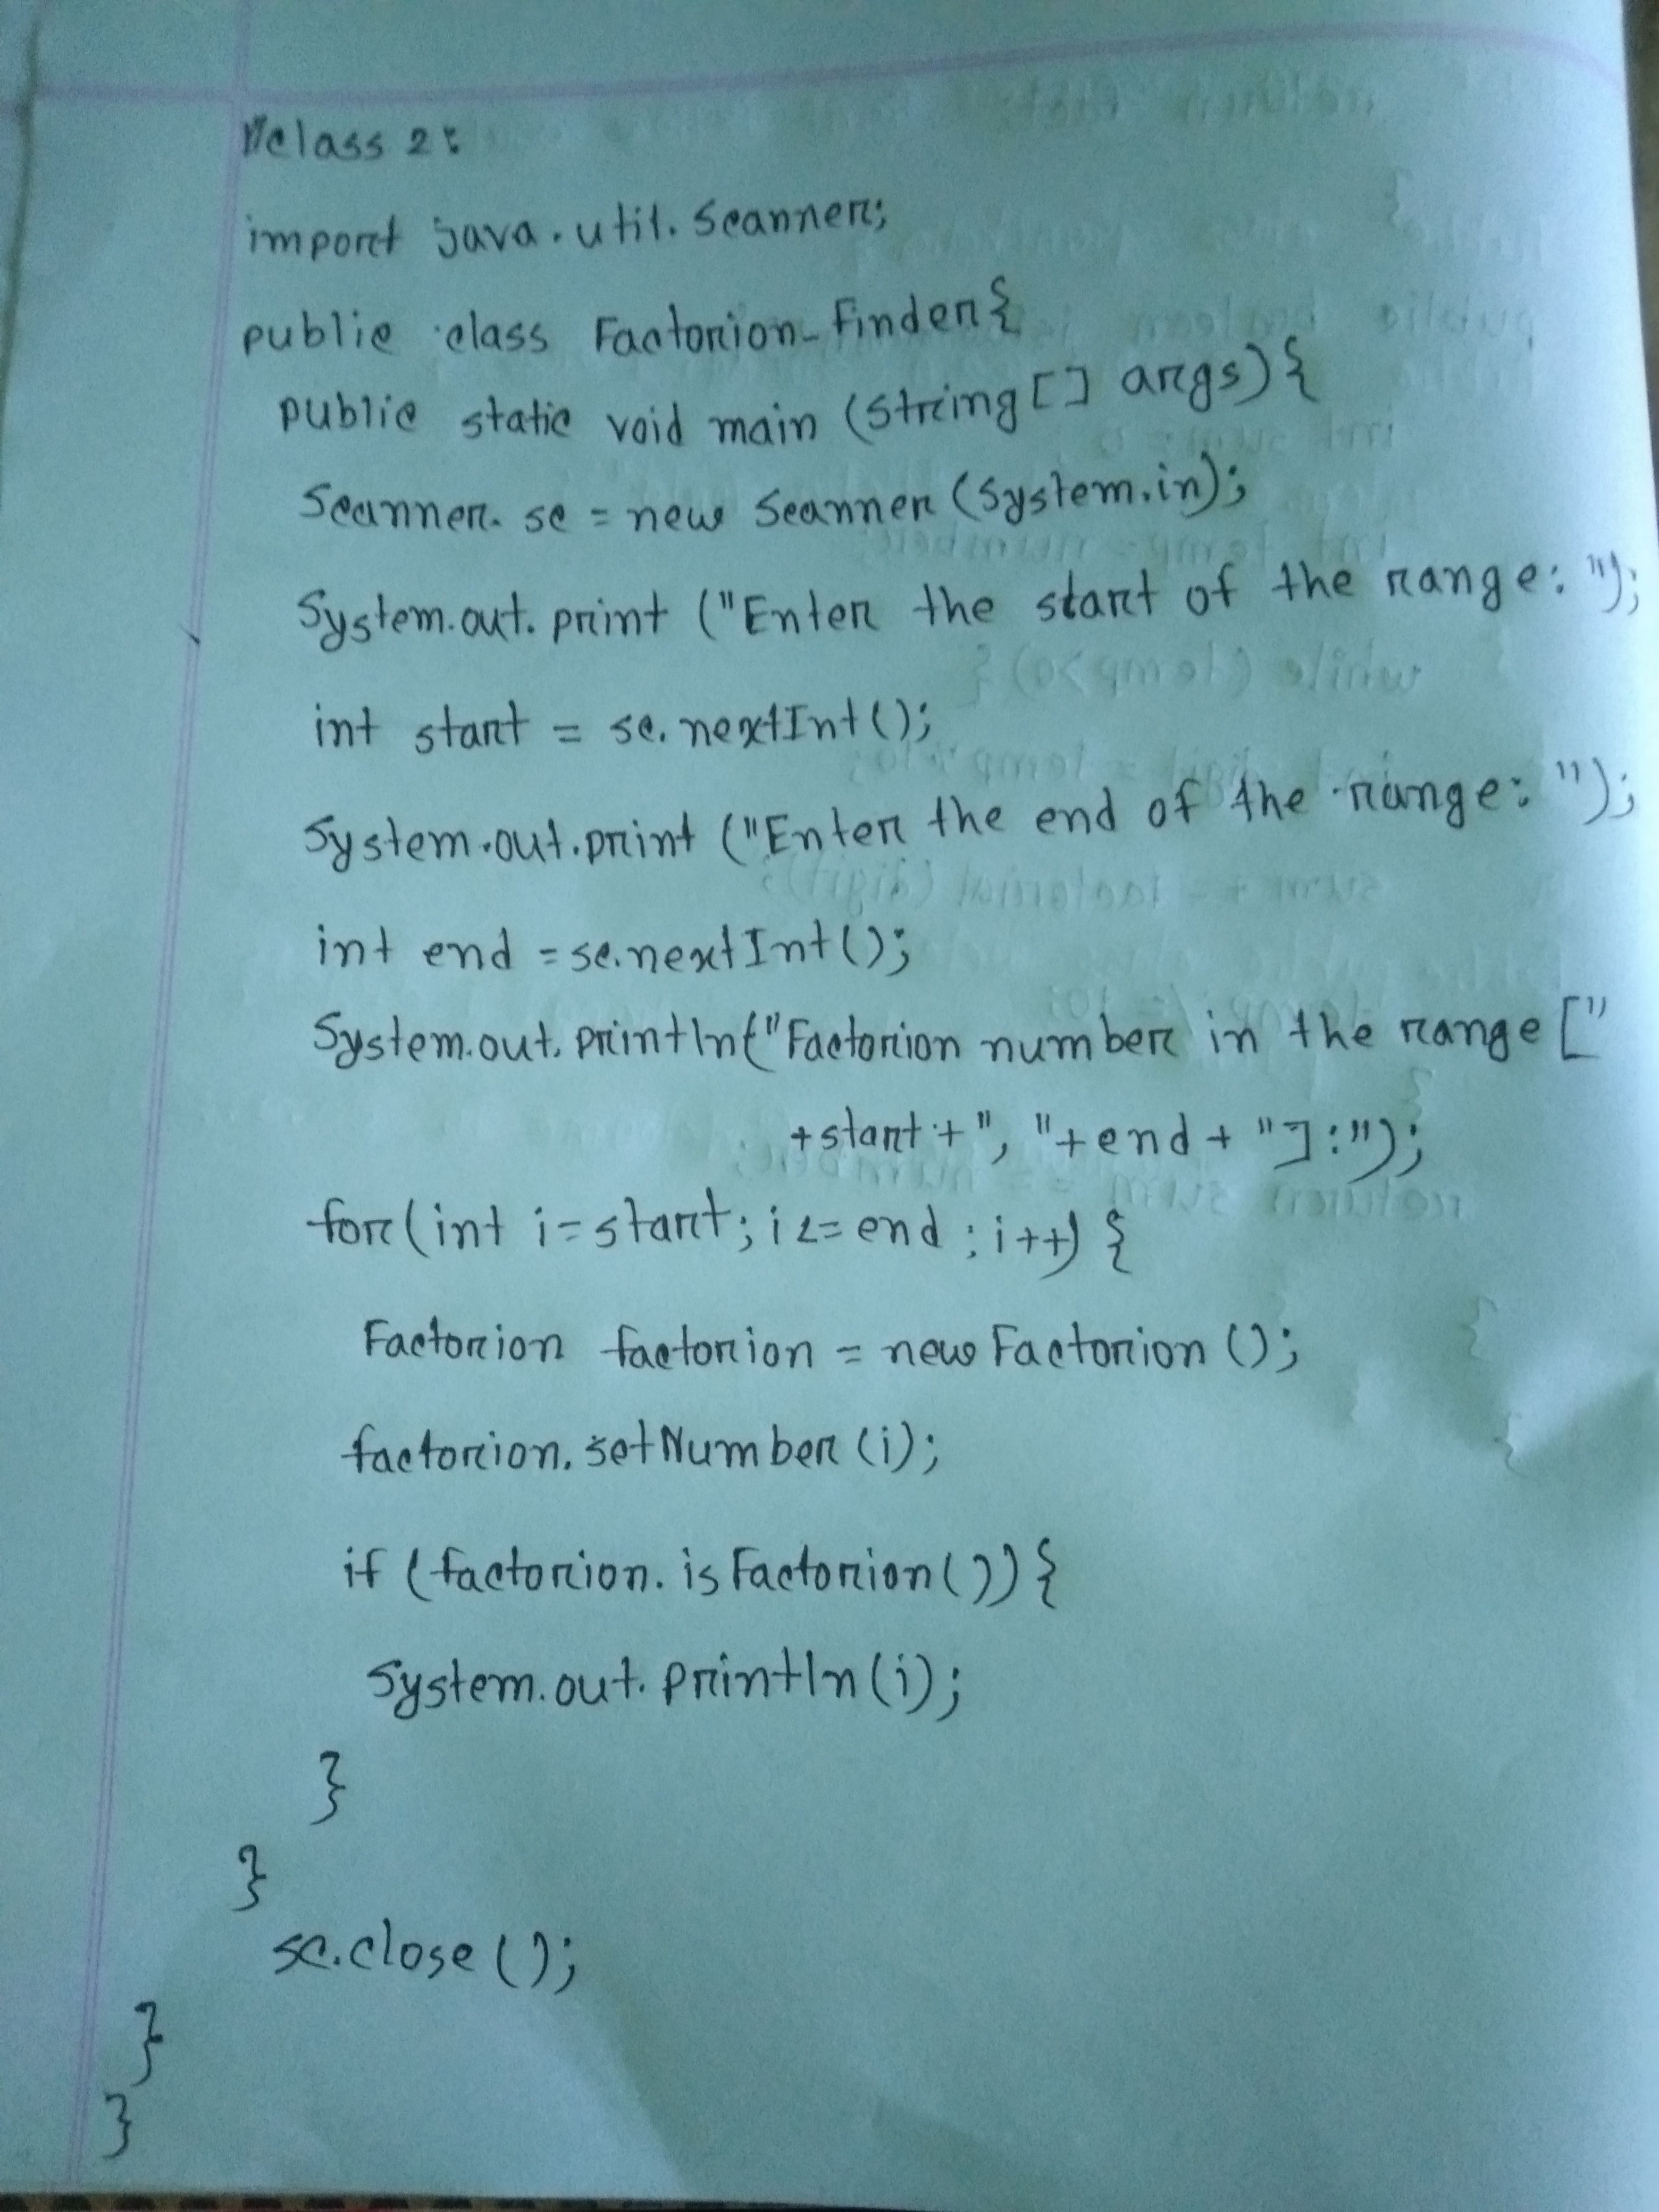 //class 2:
import java.util.Scanner;
public class Factorion_Finder{
public static void main (String [] args) {
Scanner sc = new Scanner (System.in);
System.out.print ("Enter the start of the range: ");
int start = sc.nextInt();
System.out.print ("Enter the end of the range: ");
int end = sc.nextInt();
System.out.println("Factorion number in the range ["
+start+", "+end+ "]:");
for(int i=start; i<=end ; i++) {
Factorion factorion = new Factorion ();
factorion.setNumber (i);
if (factorion.isFactorion()) {
System.out.println(i);
}
}
sc.close ();
}
}